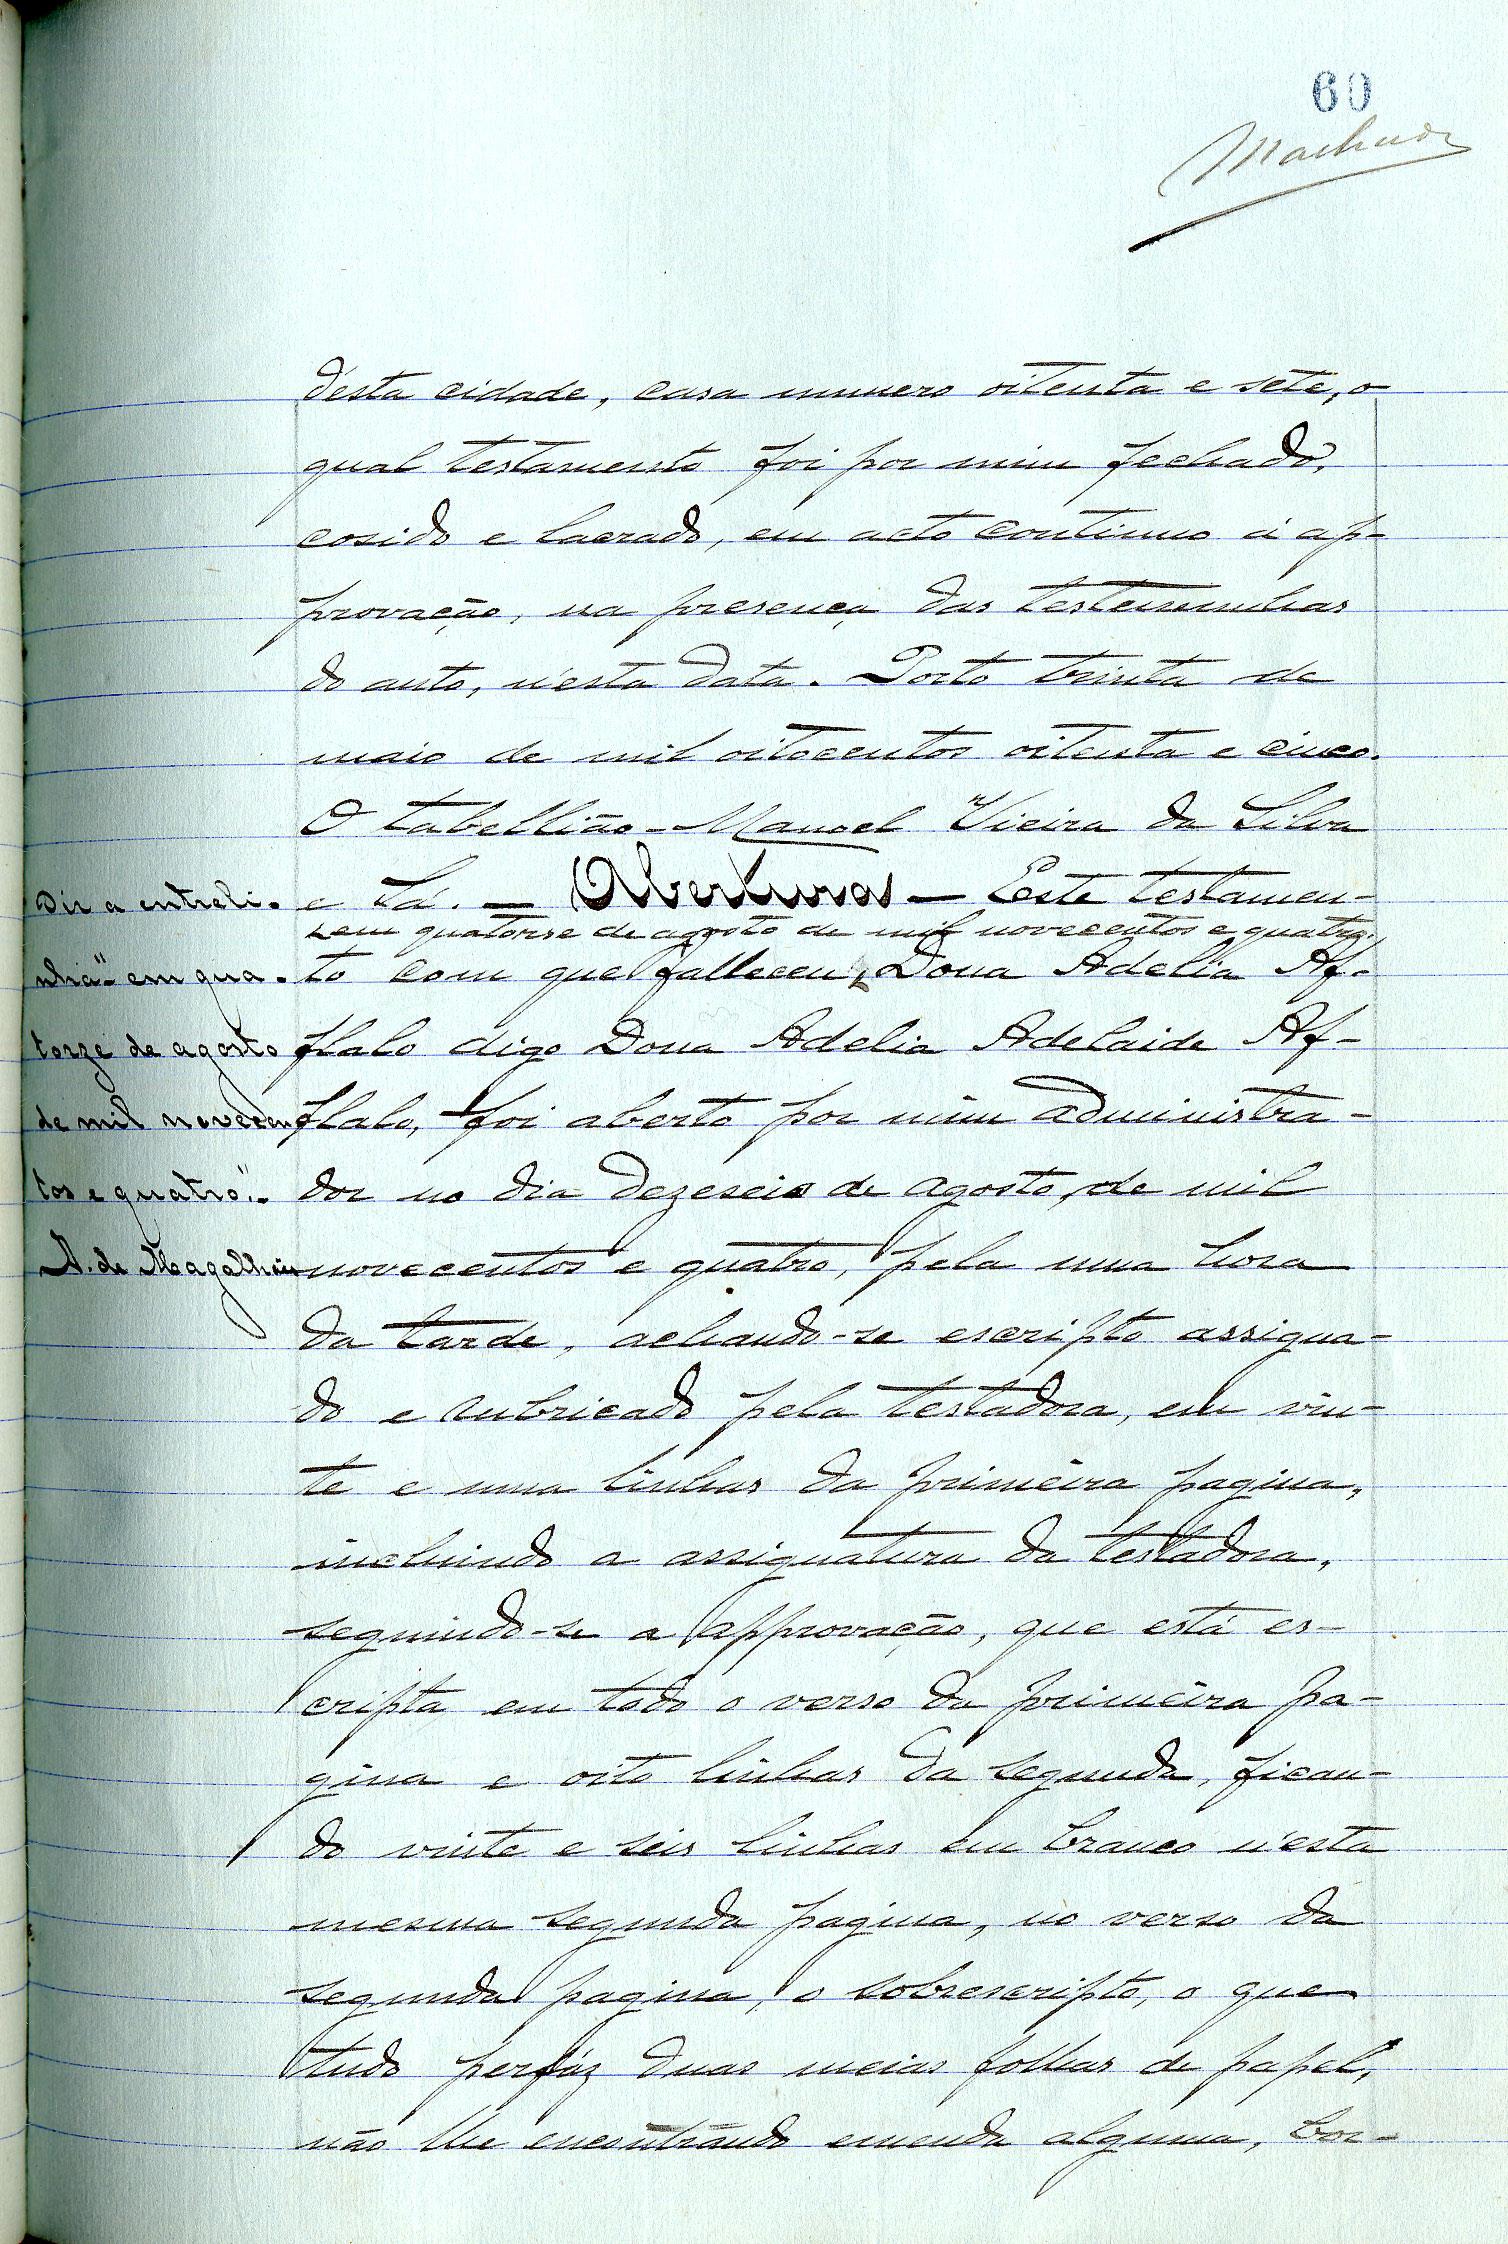 60
Machado
d'esta cidade, casa numero oitenta e sete, o
qual testamento foi por mim fechado,
cosido e lacrado, em acto continuo á ap-
provação, na presença das testemunhas
do auto, n'esta data. Porto trinta de
maio de mil oitocentos oitenta e cinco.
O tabellião - Manoel Vieira da Silva
e Sá. — Abertura — Este testamen-
em quatorse de agosto de mil novecentos e quatro,
to com que falleceu, Dona Adelia Af-
flalo digo Dona Adelia Adelaide Af-
flalo, foi aberto por mim administra-
dor no dia dezeseis de agosto, de mil
novecentos e quatro, pela uma hora
da tarde, achando-se escripto assigna-
do e rubricado pela testadora, em vin-
te e uma linhas da primeira pagina,
incluindo a assignatura da testadora,
seguindo-se a approvação, que está es-
cripta em todo o verso da primeira pa-
gina e oito linhas da segunda, fican-
do vinte e seis linhas em branco n'esta
mesma segunda pagina, no verso da
segunda pagina, o sobrescripto, o que
tudo perfáz duas meias folhas de papel,
não lhe encontrando emenda alguma, bor-
Diz a entreli-
nha "em qua-
torze de agosto
de mil novecen
tos e quatro".
A. de Magalhães